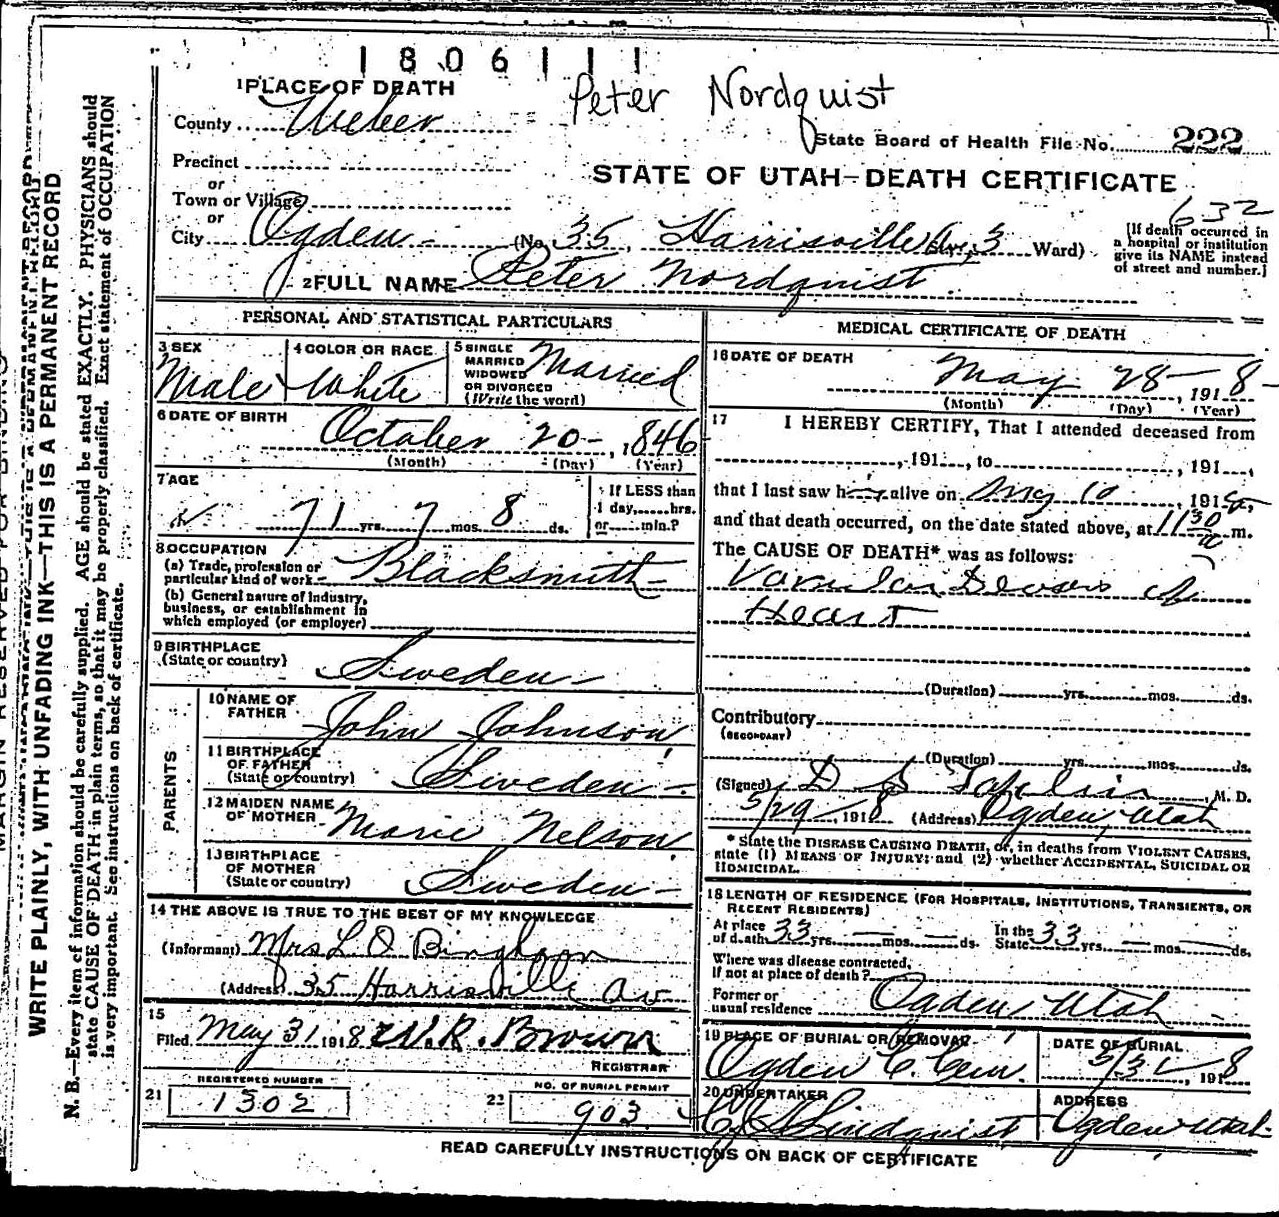 1806111
Peter Nordquist
1 PLACE OF DEATH
County Weber
State Board of Health File No. 222
Precinct
or
Town or Village
or
STATE OF UTAH—DEATH CERTIFICATE
632
City Ogden - (No. 35, Harrisville Av, 3 Ward)
[If death occurred in
a hospital or institution
give its NAME instead
of street and number.]
2 FULL NAME Peter Nordquist
PERSONAL AND STATISTICAL PARTICULARS
3 SEX Male
4 COLOR OR RACE White
5 SINGLE
MARRIED
WIDOWED
OR DIVORCED
(Write the word) Married
6 DATE OF BIRTH
October 20 - , 1846
(Month) (Day) (Year)
7 AGE
71 yrs. 7 mos. 8 ds.
If LESS than
1 day, hrs.
or min.?
8 OCCUPATION
(a) Trade, profession or
particular kind of work - Blacksmith -
(b) General nature of industry,
business, or establishment in
which employed (or employer)
9 BIRTHPLACE
(State or country) Sweden -
PARENTS
10 NAME OF
FATHER John Johnson
11 BIRTHPLACE
OF FATHER
(State or country) Sweden -
12 MAIDEN NAME
OF MOTHER Marie Nelson
13 BIRTHPLACE
OF MOTHER
(State or country) Sweden -
14 THE ABOVE IS TRUE TO THE BEST OF MY KNOWLEDGE
(Informant) Mrs L O Bingham
(Address) 35 Harrisville Av
15
Filed May 31 1918 W.R. Brown
REGISTRAR
REGISTERED NUMBER
21 1302
NO. OF BURIAL PERMIT
22 903
MEDICAL CERTIFICATE OF DEATH
16 DATE OF DEATH
May 28 - , 1918 -
(Month) (Day) (Year)
17 I HEREBY CERTIFY, That I attended deceased from
, 191 , to , 191 ,
that I last saw h alive on May 10 , 191
and that death occurred, on the date stated above, at 11 30 m.
The CAUSE OF DEATH* was as follows:
of
Heart
(Duration) yrs. mos. ds.
Contributory
(SECONDARY)
(Duration) yrs. mos. ds.
(Signed) D , M. D.
5/29 , 1918 (Address) Ogden, Utah
* State the DISEASE CAUSING DEATH, or, in deaths from VIOLENT CAUSES,
state (1) MEANS OF INJURY; and (2) whether ACCIDENTAL, SUICIDAL OR
HOMICIDAL.
18 LENGTH OF RESIDENCE (FOR HOSPITALS, INSTITUTIONS, TRANSIENTS, OR
RECENT RESIDENTS)
At place
of death 33 yrs. — mos. — ds.
In the
State 33 yrs. — mos. — ds.
Where was disease contracted,
if not at place of death?
Former or
usual residence Ogden Utah
19 PLACE OF BURIAL OR REMOVAL
Ogden C. Cem.
DATE OF BURIAL
5/31 , 1918
20 UNDERTAKER
Lindquist
ADDRESS
Ogden Utah
READ CAREFULLY INSTRUCTIONS ON BACK OF CERTIFICATE
MARGIN RESERVED FOR BINDING
WRITE PLAINLY, WITH UNFADING INK—THIS IS A PERMANENT RECORD
N. B.—Every item of information should be carefully supplied. AGE should be stated EXACTLY. PHYSICIANS should
state CAUSE OF DEATH in plain terms, so that it may be properly classified. Exact statement of OCCUPATION
is very important. See instructions on back of certificate.